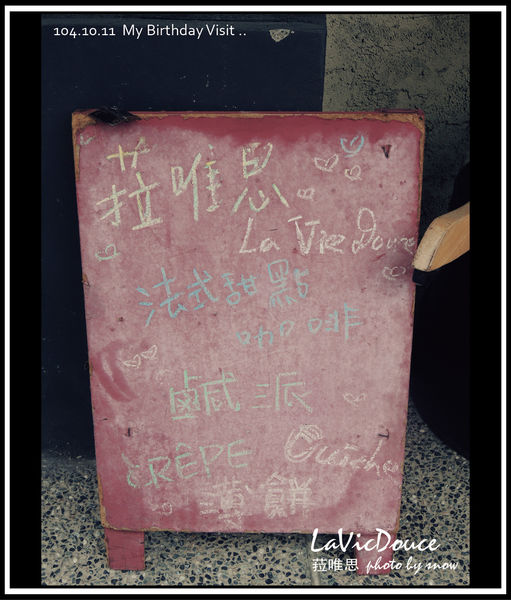 104.10.11 My Birthday Visit ..
菈唯思
La Vie Douce
法式甜點
咖啡
鹹派
CRÊPE Quiche
薄餅
LaVieDouce
菈唯思 photo by snow